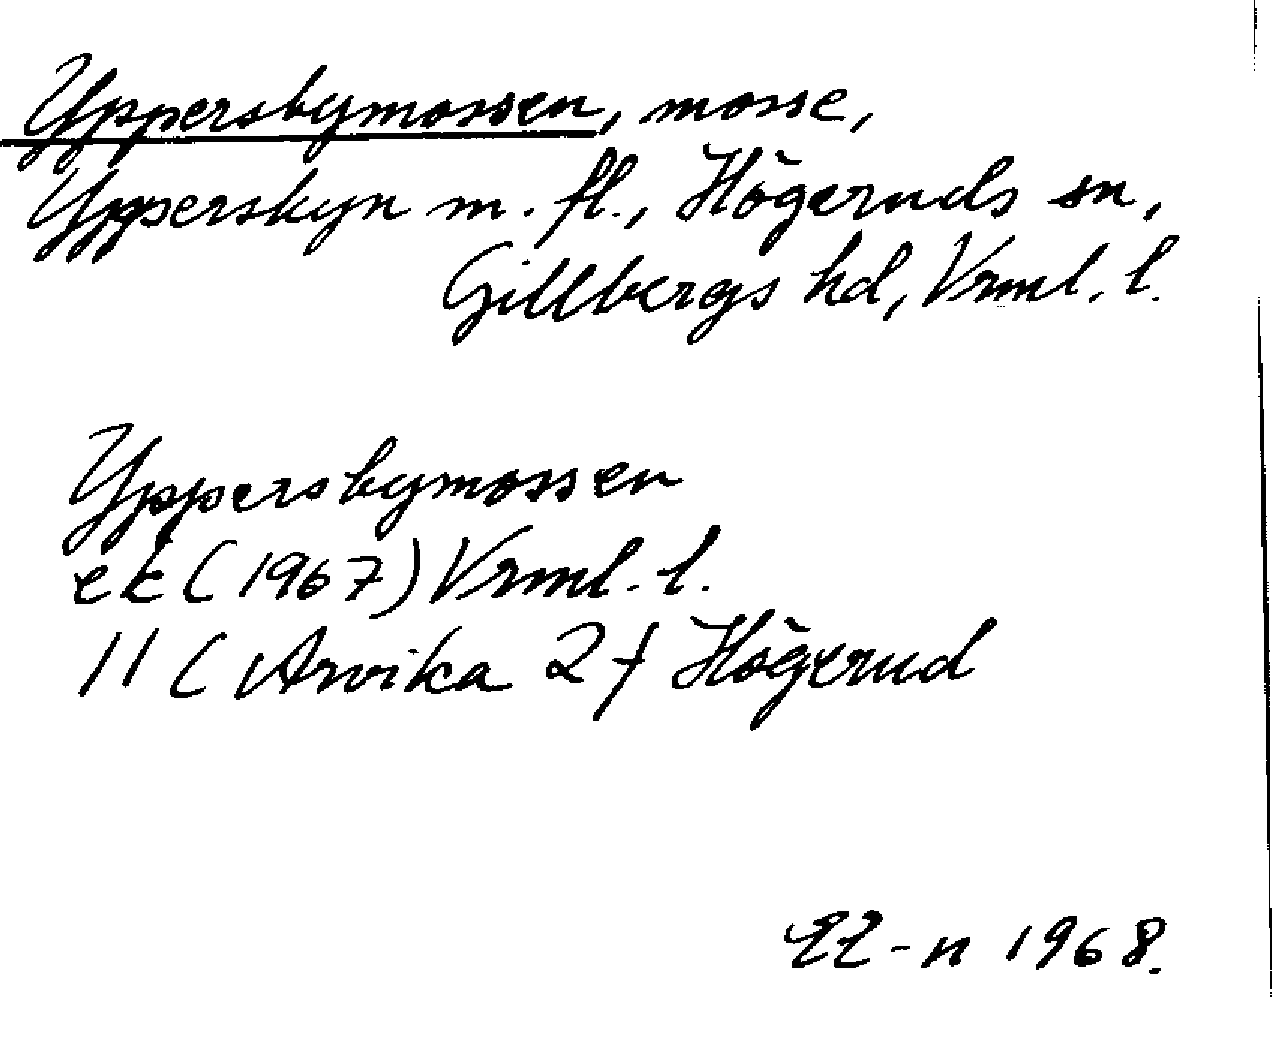 Yppersbymossen, mosse,
Ypperskyn m. fl., Högeruds sn,
Gillbergs hd, Vrml. l.
Yppersbymossen
ek (1967) Vrml. l.
11 (Arvika 2) Högerud
EL-n 1968.